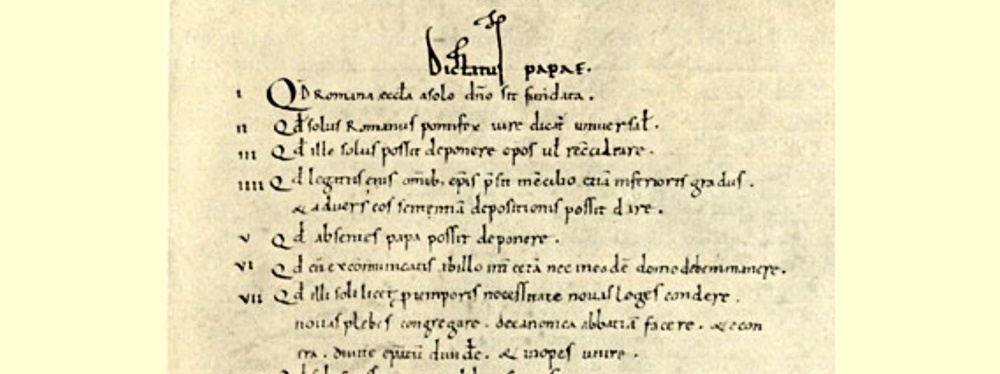 Dictatus papae.
i Qd Romana eccla a solo dno sit fundata.
ii Qd solus Romanus pontifex iure dicat universal.
iii Qd ille solus possit deponere epos ul reconciliare.
iiii Qd legatus eius omib. epis presit in concilio. etia inferioris gradus.
& adversus eos sententia depositionis possit dare.
v Qd absentes papa possit deponere.
vi Qd cu excomunicatis ab illo int cetera nec in eade domo debemus manere.
vii Qd illi soli licet p temporis necessitate novas leges condere.
novas plebes congregare. de canonica abbatia facere. & e con
tra. divite epatu dividere. & inopes unire.